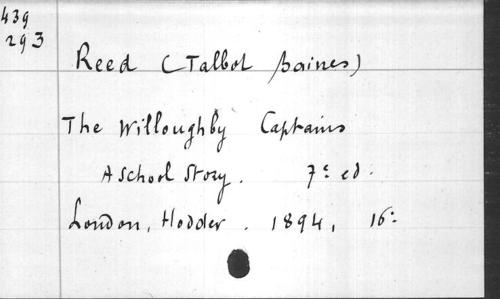 439
293
Reed (Talbot Baines)
The Willoughby Captains
A School Story. 7e ed.
London, Hodder. 1894, 16: